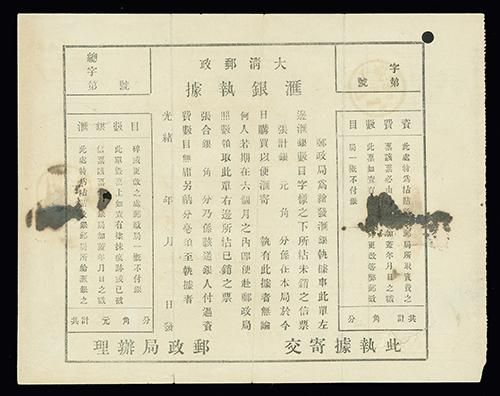 大清郵政
匯銀執據
字
第 號
總字第 號
資費數目
此處特為粘貼郵局所取資費之
局一概不付銀
共計 角 分
郵政局為給發匯銀執據事此單左
邊匯銀數目字樣之下所粘未銷之信票
張計銀 元 角 分係在本局於今
日購買以便匯寄 執有此據者無論
何人若期在六個月之內即便赴郵政局
照數領取此單右邊所粘已銷之票
張合銀 角 分乃係該送銀人付過資
費數目無庸另納分毫須至執據者
光緒 年 月 日發
匯銀數目
此處特為粘貼
郵局所給匯銀之
信票該票必由
局加蓋年月日之戳
此單暨票上如查有塗抹痕跡或已戳
碎或更改之處郵政局一概不付銀
共計 元 角 分
此執據寄交 郵政局辦理